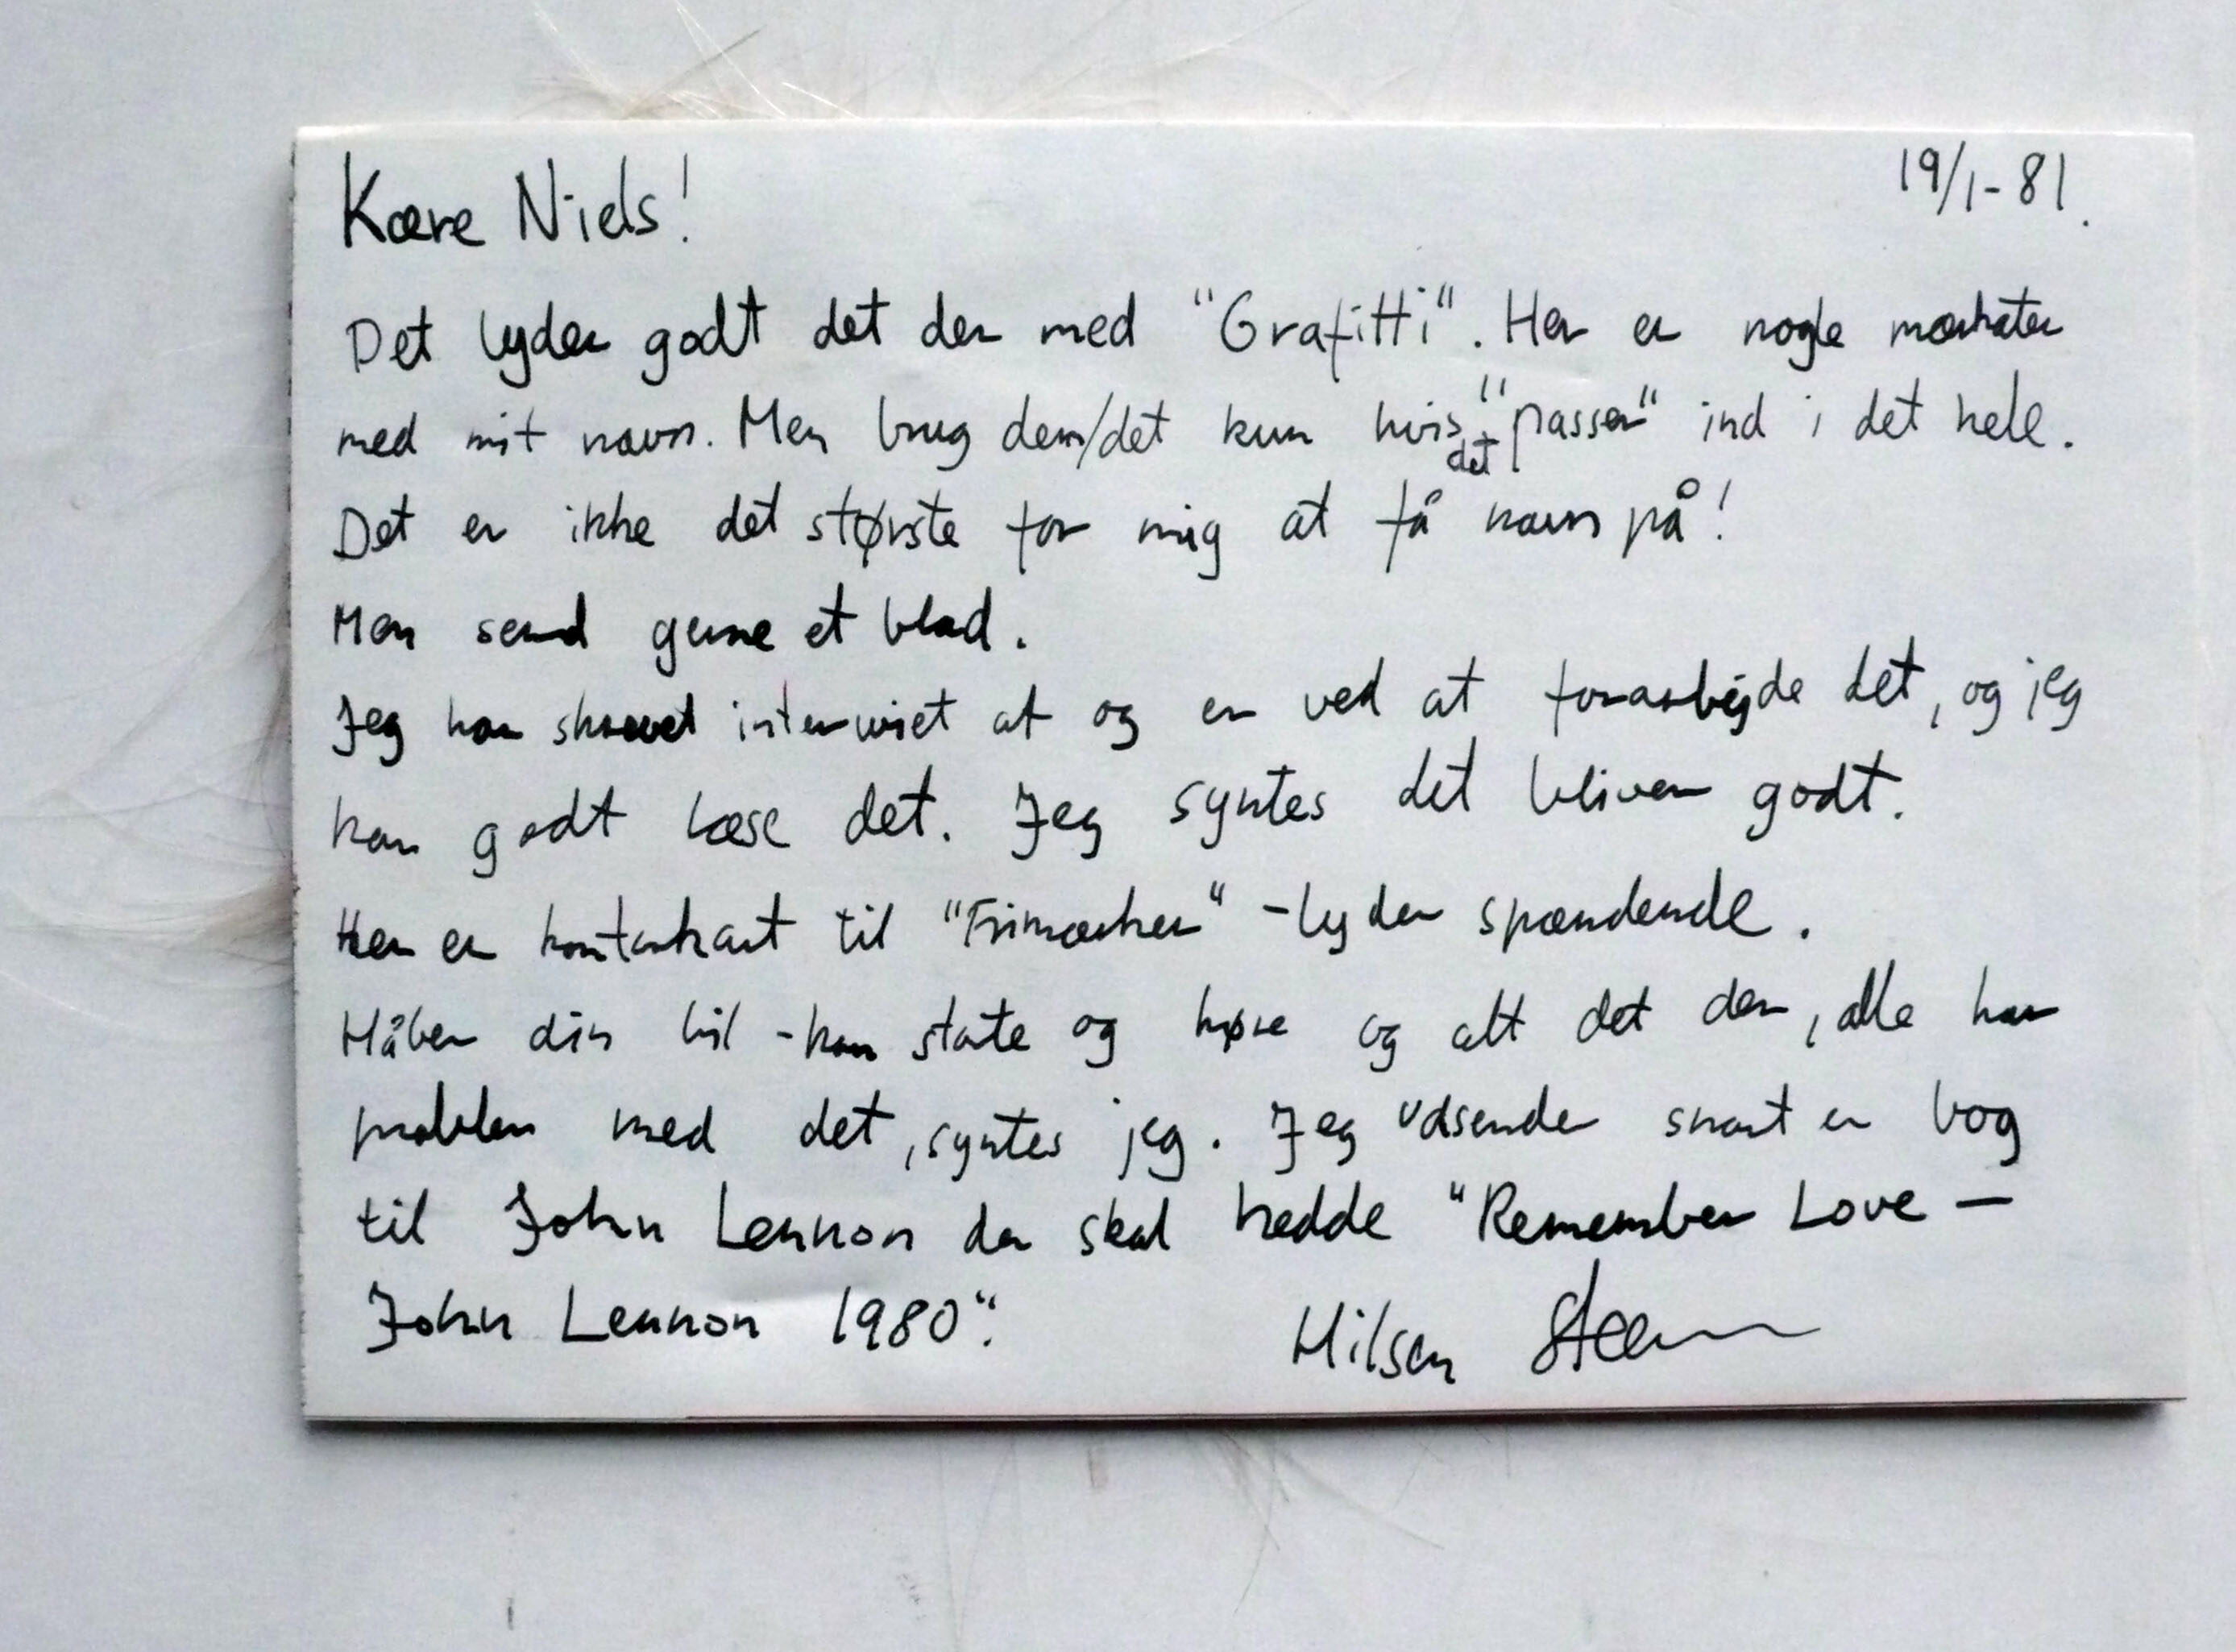 Kære Niels!
19/1-81.
Det lyder godt det der med "Grafitti". Her er nogle mærkater
med mit navn. Men brug dem/det kun hvis det "passer" ind i det hele.
Det er ikke det største for mig at få navn på!
Men send gerne et blad.
Jeg har skrevet interwiet af og er ved at forarbejde det, og jeg
kan godt læse det. Jeg syntes det bliver godt.
Her er kontankart til "Frimærker" - lyder spændende.
Håber din bil - kan starte og køre og alt det der, alle har
problem med det, syntes jeg. Jeg udsender snart en bog
til John Lennon der skal hedde "Remember Love —
John Lennon 1980".
Hilsen Steen